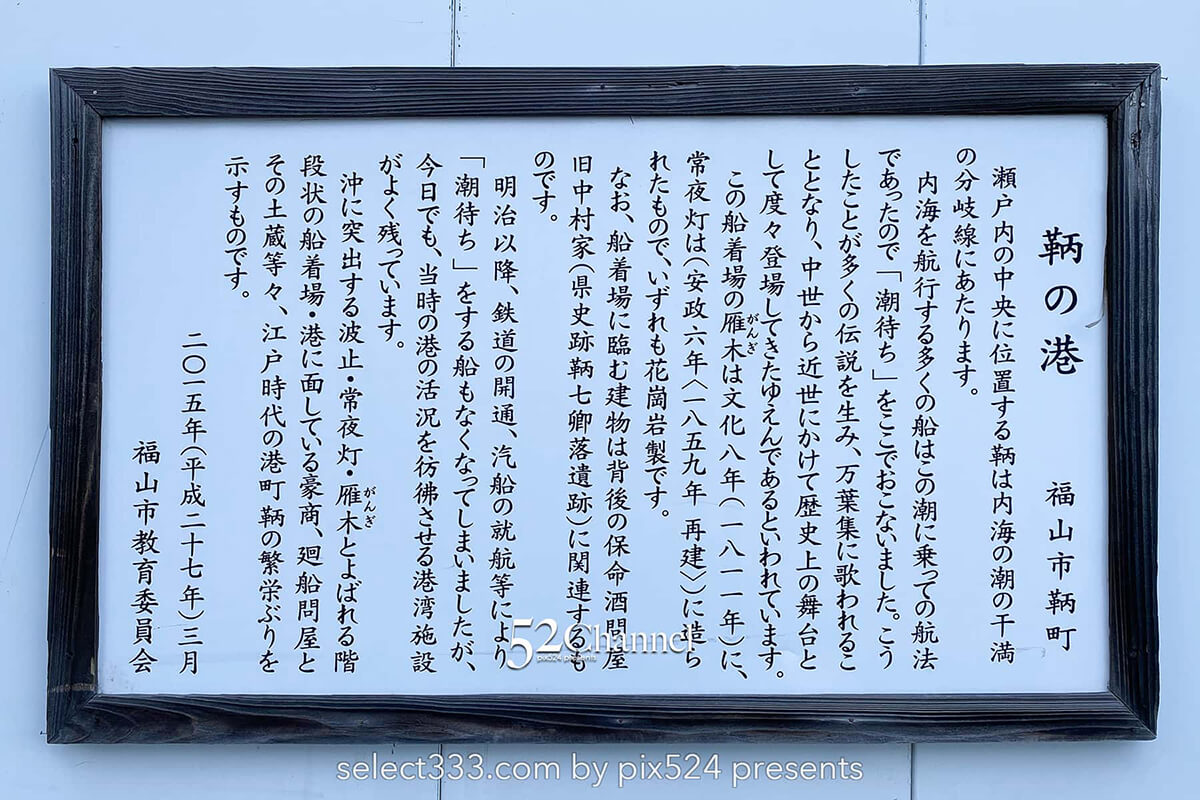 鞆の港　　福山市鞆町
瀬戸内の中央に位置する鞆は内海の潮の干満
の分岐線にあたります。
内海を航行する多くの船はこの潮に乗っての航法
であったので「潮待ち」をここでおこないました。こう
したことが多くの伝説を生み、万葉集に歌われるこ
ととなり、中世から近世にかけて歴史上の舞台と
して度々登場してきたゆえんであるといわれています。
この船着場の雁木がんぎは文化八年(一八一一年)に、
常夜灯は(安政六年〈一八五九年 再建〉)に造ら
れたもので、いずれも花崗岩製です。
なお、船着場に臨む建物は背後の保命酒問屋
旧中村家(県史跡鞆七卿落遺跡)に関連するも
のです。
明治以降、鉄道の開通、汽船の就航等により
「潮待ち」をする船もなくなってしまいましたが、
今日でも、当時の港の活況を彷彿させる港湾施設
がよく残っています。
沖に突出する波止・常夜灯・雁木がんぎとよばれる階
段状の船着場・港に面している豪商、廻船問屋と
その土蔵等々、江戸時代の港町鞆の繁栄ぶりを
示すものです。
二〇一五年(平成二十七年)三月
福山市教育委員会
52Channel
pix524 presents
select333.com by pix524 presents